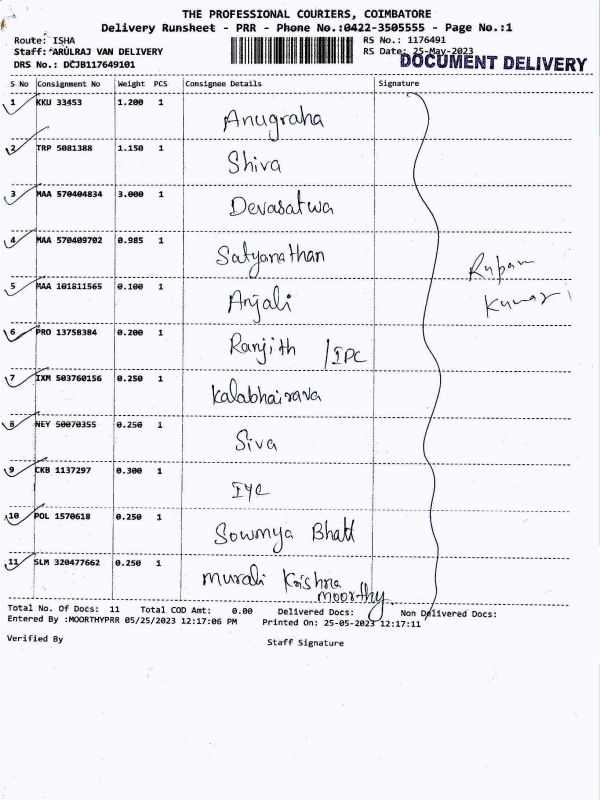 THE PROFESSIONAL COURIERS, COIMBATORE
Delivery Runsheet - PRR - Phone No.:0422-3505555 - Page No.:1
Route: ISHA RS No.: 1176491
Staff: ARULRAJ VAN DELIVERY RS Date: 25-May-2023
DRS No.: DCJB117649101 DOCUMENT DELIVERY
S No Consignment No Weight PCS Consignee Details Signature
1 KKU 33453 1.200 1 Anugraha
2 TRP 5081388 1.150 1 Shiva
3 MAA 570404834 3.000 1 Devasatwa
4 MAA 570409702 0.985 1 Satyanathan
5 MAA 101811565 0.100 1 Anjali
6 PRO 13758384 0.200 1 Ranjith /IPC
7 IXM 503760156 0.250 1 Kalabhairava
8 NEY 50070355 0.250 1 Siva
9 CKB 1137297 0.300 1 IYC
10 POL 1570618 0.250 1 Sowmya Bhatt
11 SLM 320477662 0.250 1 Murali Krishna
moorthy
Kumar
Total No. Of Docs: 11 Total COD Amt: 0.00 Delivered Docs: Non Delivered Docs:
Entered By :MOORTHYPRR 05/25/2023 12:17:06 PM Printed On: 25-05-2023 12:17:11
Verified By Staff Signature